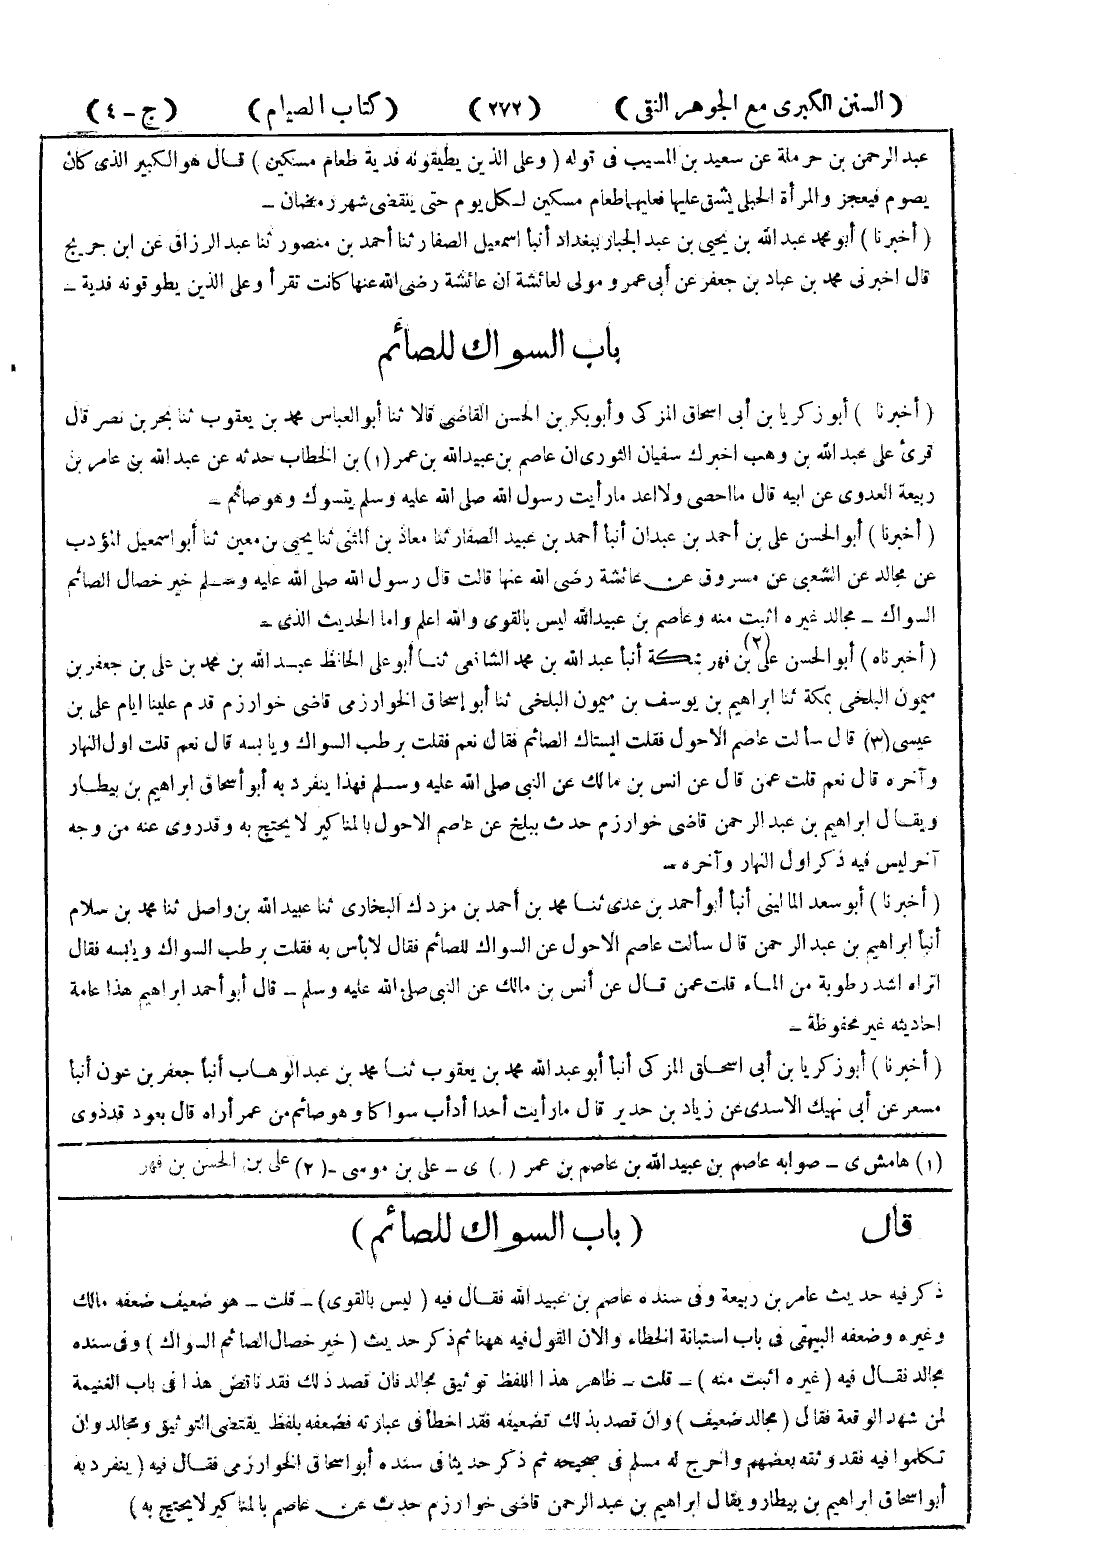 ( السنن الكبرى مع الجوهر النقى ) ( ٢٧٢ ) ( كتاب الصيام ) ( ج - ٤ )
عبد الرحمن بن حرملة عن سعيد بن المسيب فى قوله ( وعلى الذين يطيقونه فدية طعام مسكين ) قال هو الكبير الذى كان
يصوم فيعجز والمرأة الحبلى يشق عليها فعليهما طعام مسكين لكل يوم حتى ينقضى شهر رمضان -
( أخبرنا ) أبو محمد عبد الله بن يحيى بن عبد الجبار ببغداد أنبأ اسمعيل الصفار ثنا أحمد بن منصور ثنا عبد الرزاق عن ابن جريج
قال اخبرنى محمد بن عباد بن جعفر عن أبى عمرو مولى لعائشة ان عائشة رضى الله عنها كانت تقرأ وعلى الذين يطوقونه فدية -
باب السواك للصائم
( أخبرنا ) أبو زكريا بن أبى اسحاق المزكى وأبو بكر بن الحسن القاضى قالا ثنا أبو العباس محمد بن يعقوب ثنا بحر بن نصر قال
قرئ على عبد الله بن وهب اخبرك سفيان الثورى ان عاصم بن عبيد الله بن عمر (١) بن الخطاب حدثه عن عبد الله بن عامر بن
ربيعة العدوى عن ابيه قال ما احصى ولا اعد ما رأيت رسول الله صلى الله عليه وسلم يتسوك وهو صائم -
( أخبرنا ) أبو الحسن على بن أحمد بن عبدان أنبأ أحمد بن عبيد الصفار ثنا معاذ بن المثنى ثنا يحيى بن معين ثنا أبو اسمعيل المؤدب
عن مجالد عن الشعبى عن مسروق عن عائشة رضى الله عنها قالت قال رسول الله صلى الله عليه وسلم خير خصال الصائم
السواك - مجالد غيره اثبت منه وعاصم بن عبيد الله ليس بالقوى والله اعلم واما الحديث الذى -
( أخبرناه ) أبو الحسن على (٢) بن فهر بمكة أنبأ عبد الله بن محمد الشافعى ثنا أبو على الحافظ عبد الله بن محمد بن على بن جعفر بن
ميمون البلخى بمكة ثنا ابراهيم بن يوسف بن ميمون البلخى ثنا أبو إسحاق الخوارزمى قاضى خوارزم قدم علينا ايام على بن
عيسى (٣) قال سألت عاصم الاحول فقلت ايستاك الصائم فقال نعم فقلت برطب السواك ويابسه قال نعم قلت اول النهار
وآخره قال نعم قلت عمن قال عن انس بن مالك عن النبى صلى الله عليه وسلم فهذا ينفرد به أبو أسحاق ابراهيم بن بيطار
ويقال ابراهيم بن عبد الرحمن قاضى خوارزم حدث ببلخ عن عاصم الاحول بالمناكير لا يحتج به وقد روى عنه من وجه
آخر ليس فيه ذكر اول النهار وآخره -
( أخبرنا ) أبو سعد المالينى أنبأ أبو أحمد بن عدى ثنا محمد بن أحمد بن مزدك البخارى ثنا عبيد الله بن واصل ثنا محمد بن سلام
أنبأ ابراهيم بن عبد الرحمن قال سألت عاصم الاحول عن السواك للصائم فقال لا بأس به فقلت برطب السواك ويابسه فقال
اتراه اشد رطوبة من الماء قلت عمن قال عن أنس بن مالك عن النبى صلى الله عليه وسلم - قال أبو أحمد ابراهيم هذا عامة
احاديثه غير محفوظة -
( أخبرنا ) أبو زكريا بن أبى اسحاق المزكى أنبأ أبو عبد الله محمد بن يعقوب ثنا محمد بن عبد الوهاب أنبأ جعفر بن عون أنبأ
مسعر عن أبى نهيك الاسدى عن زياد بن حدير قال ما رأيت أحدا أدأب سواكا وهو صائم من عمر أراه قال بعود قد ذوى
(١) هامش ى - صوابه عاصم بن عبيد الله بن عاصم بن عمر ( ) ى - على بن موسى - (٢) على بن الحسن بن فهر
قال ( باب السواك للصائم )
ذكر فيه حديث عامر بن ربيعة وفى سنده عاصم بن عبيد الله فقال فيه ( ليس بالقوى ) - قلت - هو ضعيف ضعفه مالك
وغيره وضعفه البيهقى فى باب استبانة الخطاء والان القول فيه ههنا ثم ذكر حديث ( خير خصال الصائم السواك ) وفى سنده
مجالد فقال فيه ( غيره اثبت منه ) - قلت - ظاهر هذا اللفظ توثيق مجالد فان قصد ذلك فقد ناقض هذا فى باب الغنيمة
لمن شهد الوقعة فقال ( مجالد ضعيف ) وان قصد بذلك تضعيفه فقد اخطأ فى عبارته فضعفه بلفظ يقتضى التوثيق ومجالد وان
تكلموا فيه فقد وثقه بعضهم واخرج له مسلم فى صحيحه ثم ذكر حديثا فى سنده أبو اسحاق الخوارزمى فقال فيه ( ينفرد به
أبو اسحاق ابراهيم بن بيطار ويقال ابراهيم بن عبد الرحمن قاضى خوارزم حدث عن عاصم بالمناكير لا يحتج به )